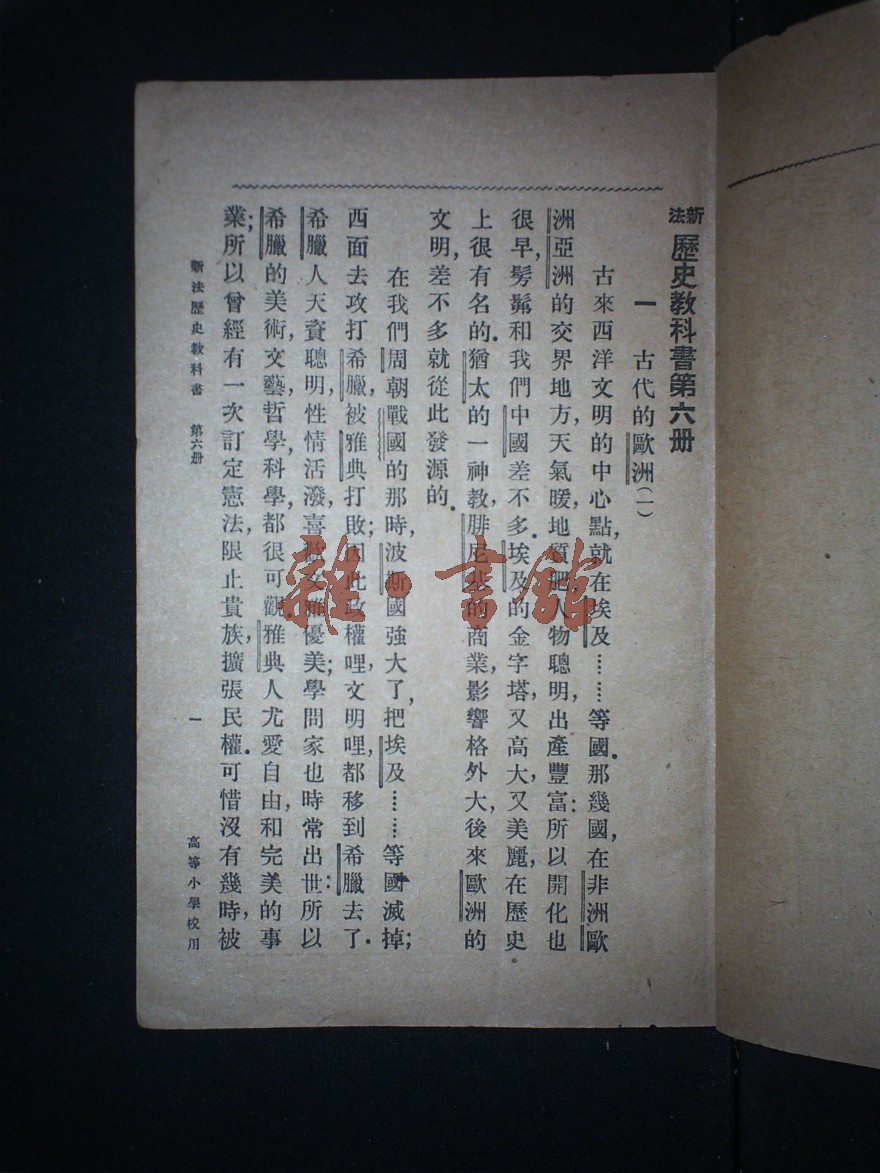 新法歷史教科書第六册
一 古代的歐洲(一)
古來西洋文明的中心點,就在埃及……等國.那幾國,在非洲歐
洲亞洲的交界地方,天氣暖,地質肥,人物聰明,出產豐富:所以開化也
很早,髣髴和我們中國差不多.埃及的金字塔,又高大,又美麗,在歷史
上很有名的.猶太的一神教,腓尼基的商業,影響格外大,後來歐洲的
文明,差不多就從此發源的.
在我們周朝戰國的那時,波斯國強大了,把埃及……等國滅掉;
西面去攻打希臘,被雅典打敗;因此政權哩,文明哩,都移到希臘去了.
希臘人天資聰明,性情活潑,喜歡文雅優美;學問家也時常出世:所以
希臘的美術,文藝,哲學,科學,都很可觀.雅典人尤愛自由,和完美的事
業;所以曾經有一次訂定憲法,限止貴族,擴張民權.可惜沒有幾時,被
新法歷史教科書 第六册 一 高等小學校用
雜·書館